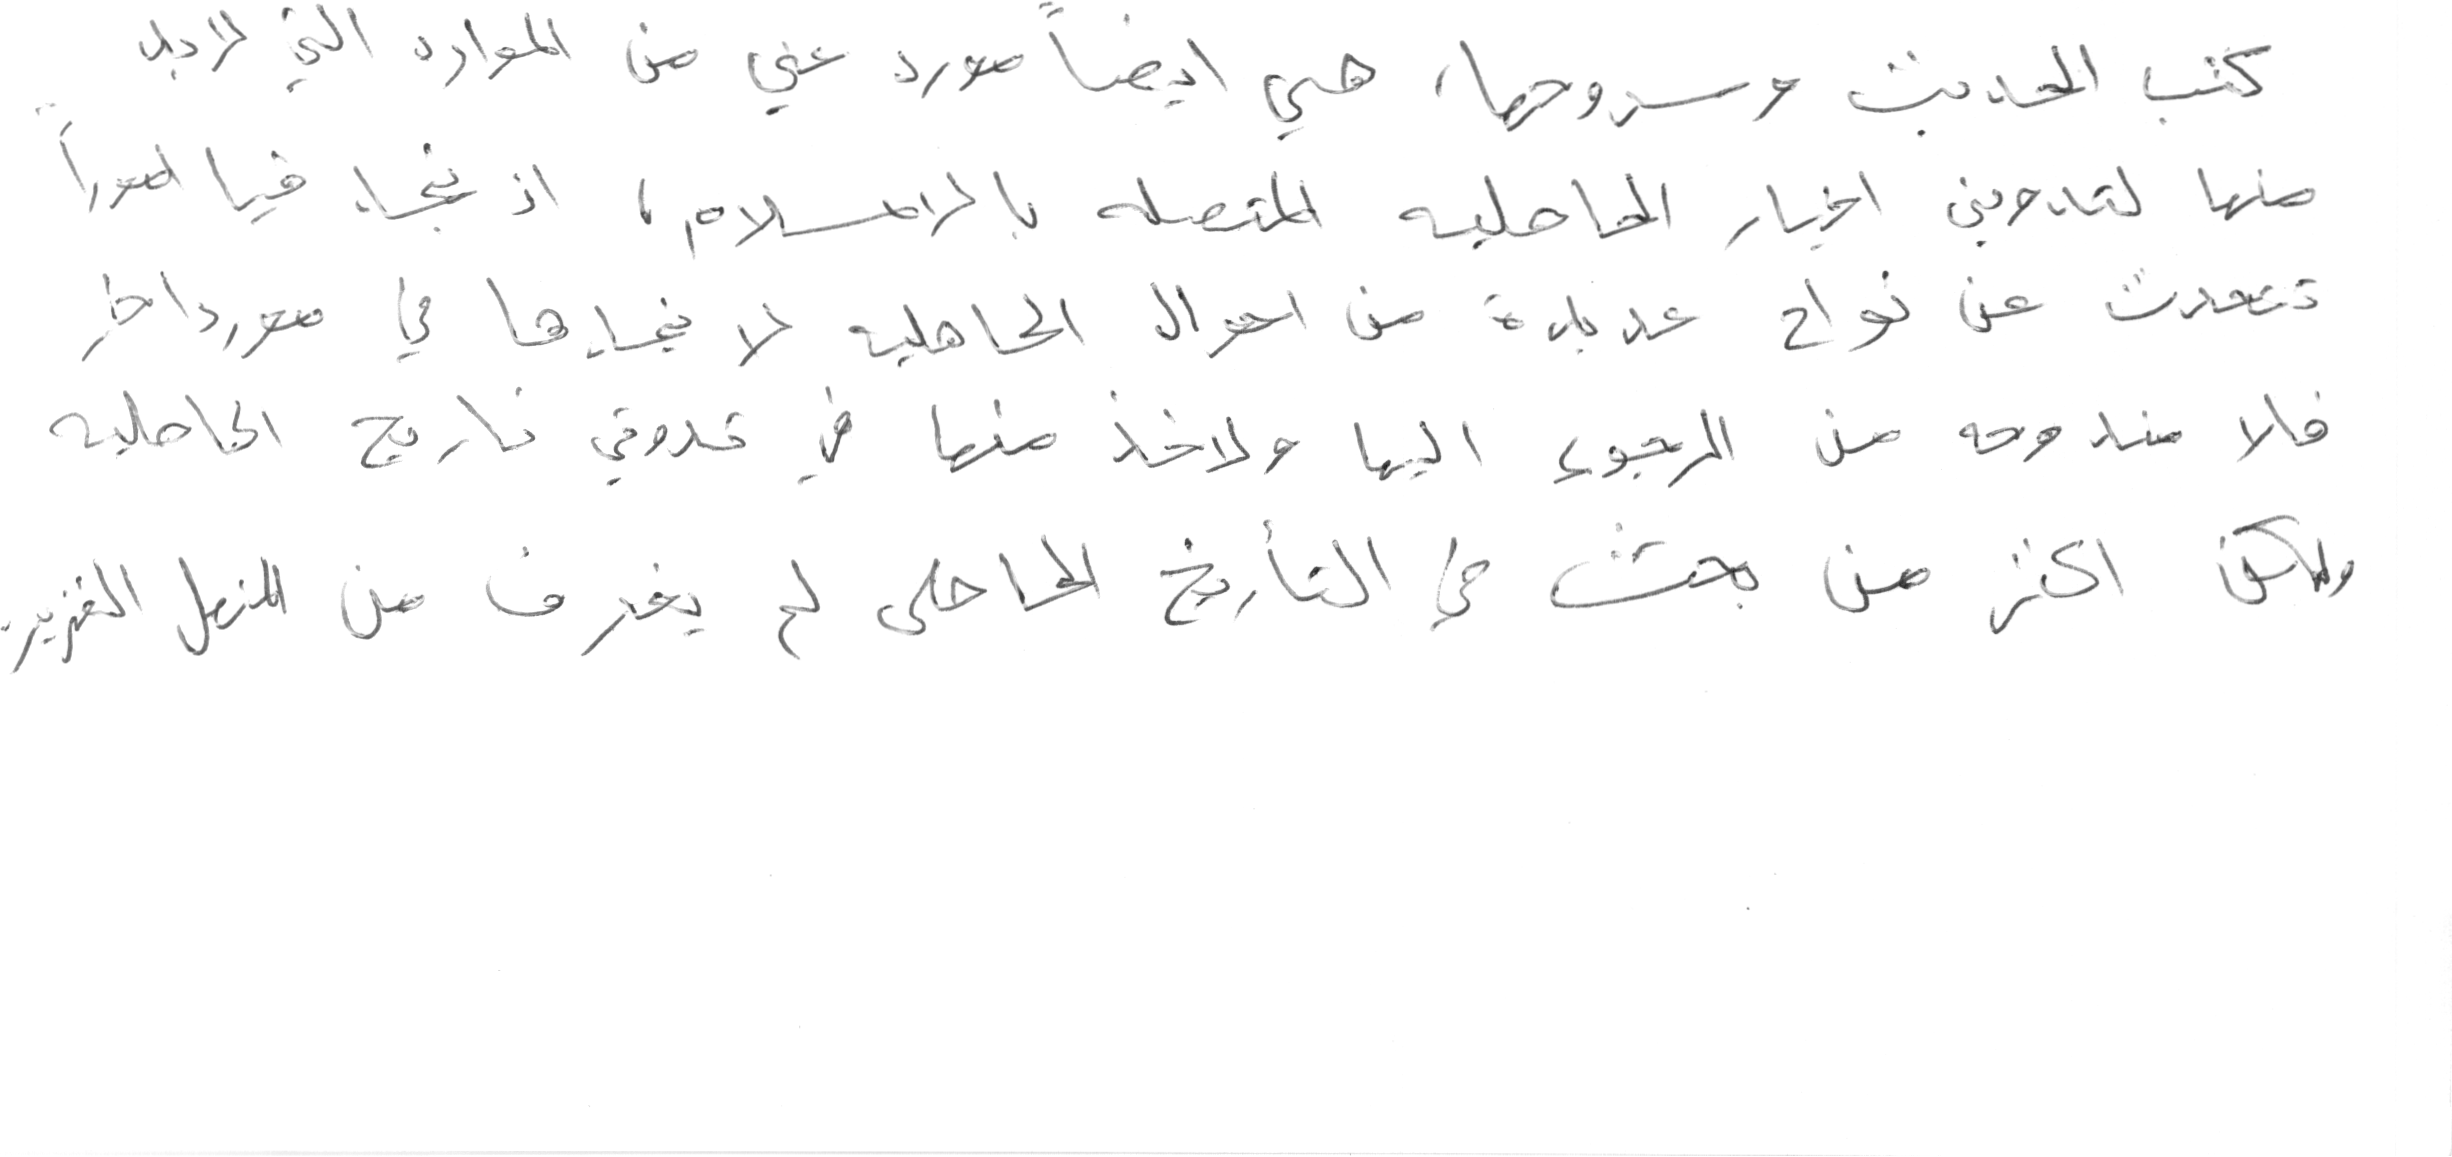 كتب الحديث وشروحها، هي ايضاً مورد غني من الموارد التي لابد
منها لتدوين اخبار الجاهلية المتصله بالاسلام، اذ نجد فيها اموراً
تتحدث عن نواح عديدة من احوال الجاهلية لا نجدها في مورد اخر
فلا مندوحه من الرجوع اليها ولاخذ منها في تدوين تاريخ الجاهليه
ولكن اكثر من بحث في التأريخ الجاهلي لم يغرف من المنهل الغزير.